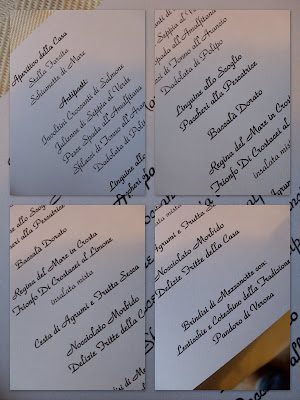 Aperitivo della Casa
Stella Fiorita
Schiumette di Mare
Antipasti:
Involtini Croccanti di Salmone
Julienne di Seppia al Verde
Pesce Spada all'Amalfitana
Sfilacci di Tonno all'Arancio
Dadolata di Polipo
Linguine allo
di Seppia al
Spada all'Amalfitana
di Tonno all'Arancio
Dadolata di Polipo
Linguine allo Scoglio
Paccheri alla Pescatrice
Baccalà Dorato
Regina del Mare in Crosta
Trionfo Di Crostacei al
insalata mista
allo
alla Pescatrice
Baccalà Dorato
Regina del Mare in Crosta
Trionfo Di Crostacei al Limone
insalata mista
Cesta di Agrumi e Frutta Secca
Nocciolato Morbido
Delizie Fritte della
di
mista
Agrumi e Frutta Secca
Nocciolato Morbido
Delizie Fritte della Casa
Brindisi di Mezzanotte con:
Lenticchie e Cotechino della Tradizione
Pandoro di Verona